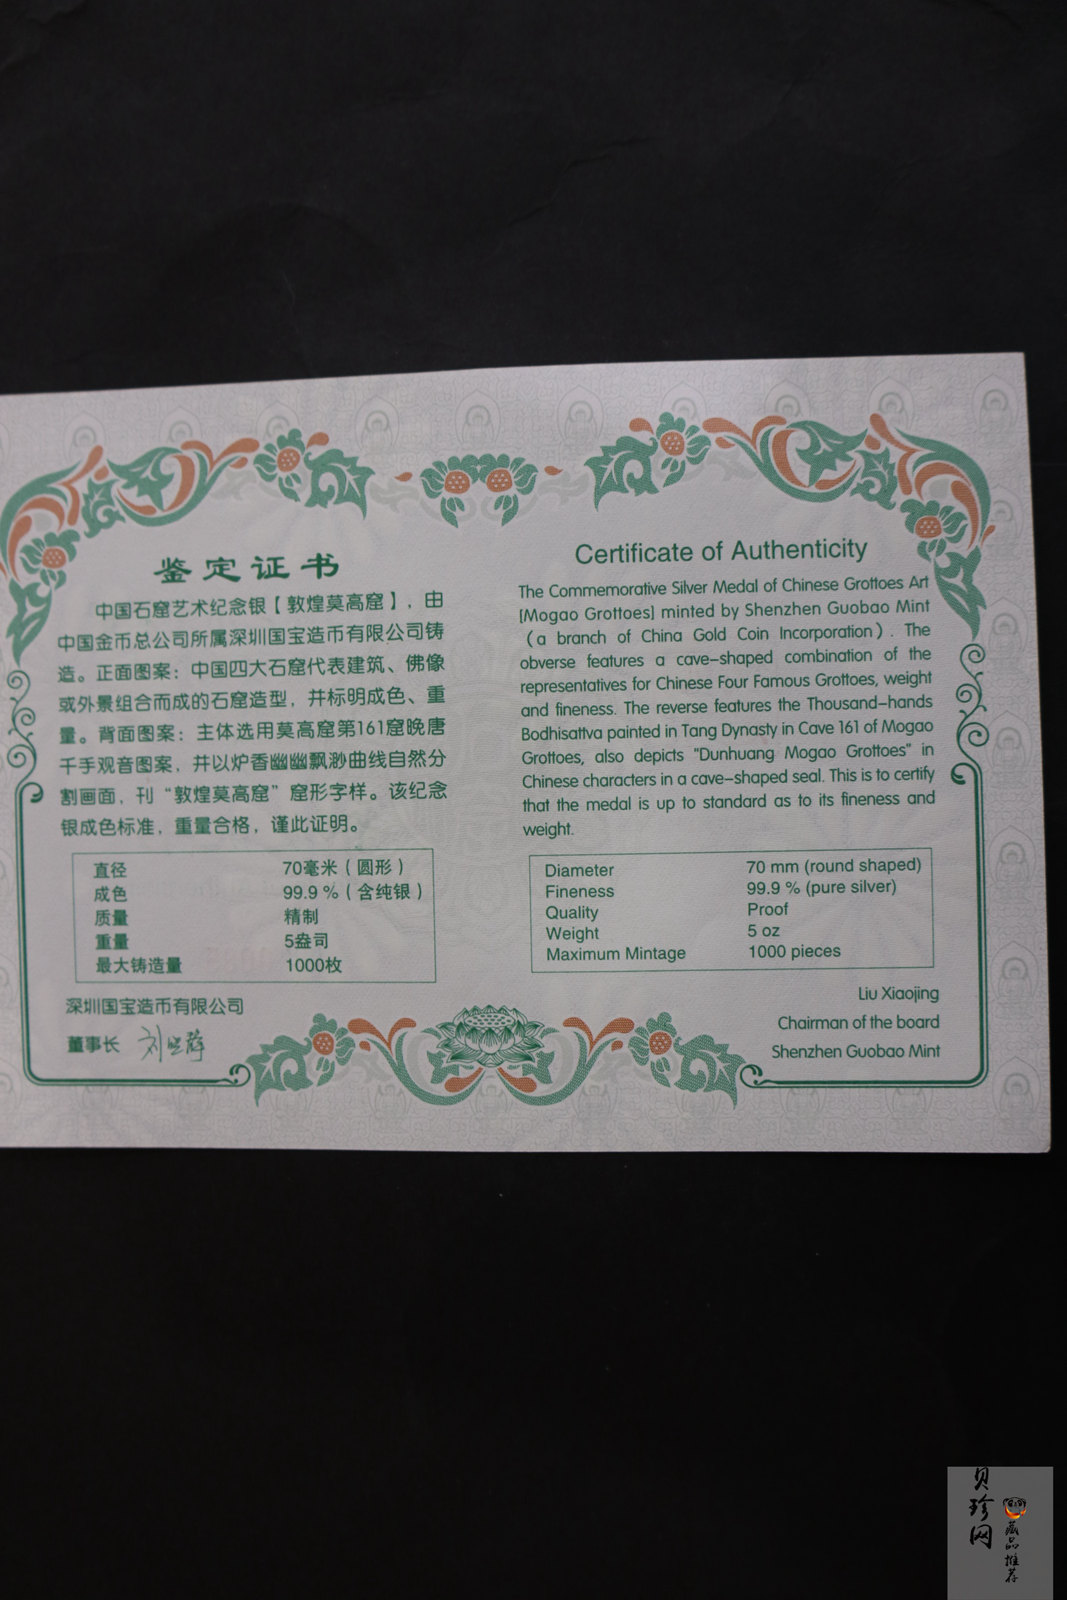 鉴定证书
中国石窟艺术纪念银【敦煌莫高窟】，由
中国金币总公司所属深圳国宝造币有限公司铸
造。正面图案：中国四大石窟代表建筑、佛像
或外景组合而成的石窟造型，并标明成色、重
量。背面图案：主体选用莫高窟第161窟晚唐
千手观音图案，并以炉香幽幽飘渺曲线自然分
割画面，刊“敦煌莫高窟”窟形字样。该纪念
银成色标准，重量合格，谨此证明。
直径 70毫米（圆形）
成色 99.9 %（含纯银）
质量 精制
重量 5盎司
最大铸造量 1000枚
深圳国宝造币有限公司
董事长
Certificate of Authenticity
The Commemorative Silver Medal of Chinese Grottoes Art
[Mogao Grottoes] minted by Shenzhen Guobao Mint
（a branch of China Gold Coin Incorporation）. The
obverse features a cave-shaped combination of the
representatives for Chinese Four Famous Grottoes, weight
and fineness. The reverse features the Thousand-hands
Bodhisattva painted in Tang Dynasty in Cave 161 of Mogao
Grottoes, also depicts "Dunhuang Mogao Grottoes" in
Chinese characters in a cave-shaped seal. This is to certify
that the medal is up to standard as to its fineness and
weight.
Diameter 70 mm (round shaped)
Fineness 99.9 % (pure silver)
Quality Proof
Weight 5 oz
Maximum Mintage 1000 pieces
Liu Xiaojing
Chairman of the board
Shenzhen Guobao Mint
贝珍网
藏品推荐